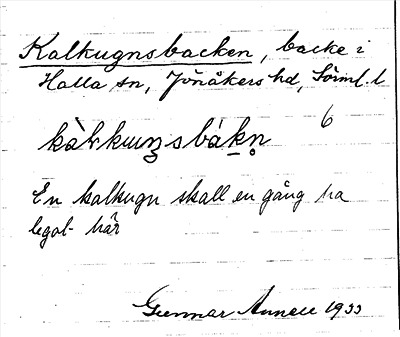 Kalkugnsbacken, backe i
Halla sn, Jönåkers hd, Sörml. l
6
kàlkuŋnsbákn̥
En kalkugn skall en gång ha
legat här
Gunnar 1933